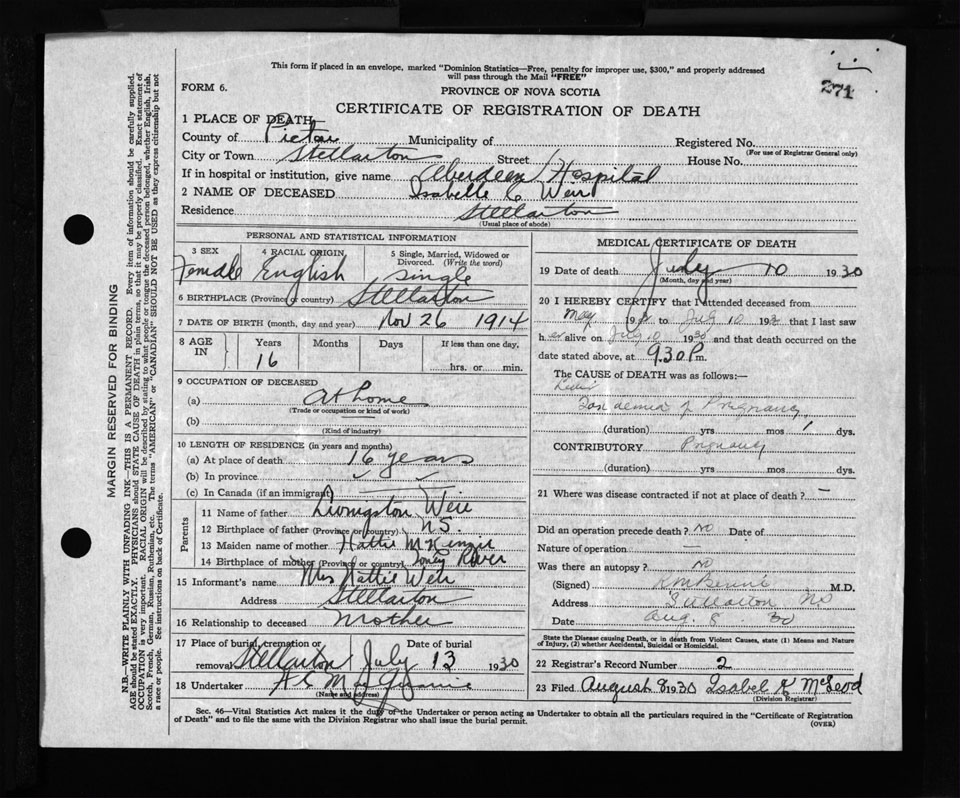 This form if placed in an envelope, marked "Dominion Statistics—Free, penalty for improper use, $300," and properly addressed
will pass through the Mail "FREE"
271
FORM 6.
PROVINCE OF NOVA SCOTIA
CERTIFICATE OF REGISTRATION OF DEATH
1 PLACE OF DEATH
County of Pictou Municipality of Registered No.
(For use of Registrar General only)
City or Town Stellarton Street House No.
If in hospital or institution, give name Aberdeen Hospital
2 NAME OF DECEASED Isabelle C Weir
Residence Stellarton
(Usual place of abode)
PERSONAL AND STATISTICAL INFORMATION
3 SEX 4 RACIAL ORIGIN 5 Single, Married, Widowed or Divorced. (Write the word)
Female English Single
6 BIRTHPLACE (Province or country) Stellarton
7 DATE OF BIRTH (month, day and year) Nov 26 1914
8 AGE IN Years Months Days If less than one day,
16 hrs. or min.
9 OCCUPATION OF DECEASED
(a) At home
(Trade or occupation or kind of work)
(b)
(Kind of industry)
10 LENGTH OF RESIDENCE (in years and months)
(a) At place of death 16 years
(b) In province
(c) In Canada (if an immigrant)
Parents
11 Name of father Livingston Weir
12 Birthplace of father (Province or country) N.S.
13 Maiden name of mother Hattie McKenzie
14 Birthplace of mother (Province or country) River
15 Informant's name Mrs Hattie Weir
Address Stellarton
16 Relationship to deceased Mother
17 Place of burial, cremation or removal Stellarton Date of burial July 13 1930
18 Undertaker
(Name and address)
MEDICAL CERTIFICATE OF DEATH
19 Date of death July 10 1930
(Month, day and year)
20 I HEREBY CERTIFY that I attended deceased from
May 19 to July 10 193 that I last saw
her alive on July 10 1930 and that death occurred on the
date stated above, at 9.30 P.m.
The CAUSE OF DEATH was as follows:—
Toxaemia of Pregnancy
(duration) yrs mos 1 dys.
CONTRIBUTORY Pregnancy
(duration) yrs mos dys.
21 Where was disease contracted if not at place of death? —
Did an operation precede death? No Date of
Nature of operation —
Was there an autopsy? No
(Signed) M.D.
Address Stellarton NS
Date Aug. 8 30
State the Disease causing Death, or in death from Violent Causes, state (1) Means and Nature
of Injury, (2) whether Accidental, Suicidal or Homicidal.
22 Registrar's Record Number 2
23 Filed August 9 1930 Isabel K McLeod
(Division Registrar)
Sec. 46—Vital Statistics Act makes it the duty of the Undertaker or person acting as Undertaker to obtain all the particulars required in the "Certificate of Registration
of Death" and to file the same with the Division Registrar who shall issue the burial permit.
(OVER)
MARGIN RESERVED FOR BINDING
N.B.—WRITE PLAINLY WITH UNFADING INK—THIS IS A PERMANENT RECORD. Every item of information should be carefully supplied.
AGE should be stated EXACTLY. PHYSICIANS should STATE CAUSE OF DEATH in plain terms, so that it may be properly classified. Exact statement of
OCCUPATION is very important. RACIAL ORIGIN will be described by stating to what people or tongue the deceased person belonged, whether English, Irish,
Scotch, French, German, Russian, Ruthenian, etc. The terms "AMERICAN" or "CANADIAN" SHOULD NOT BE USED as they express citizenship but not
a race or people. See instructions on back of Certificate.